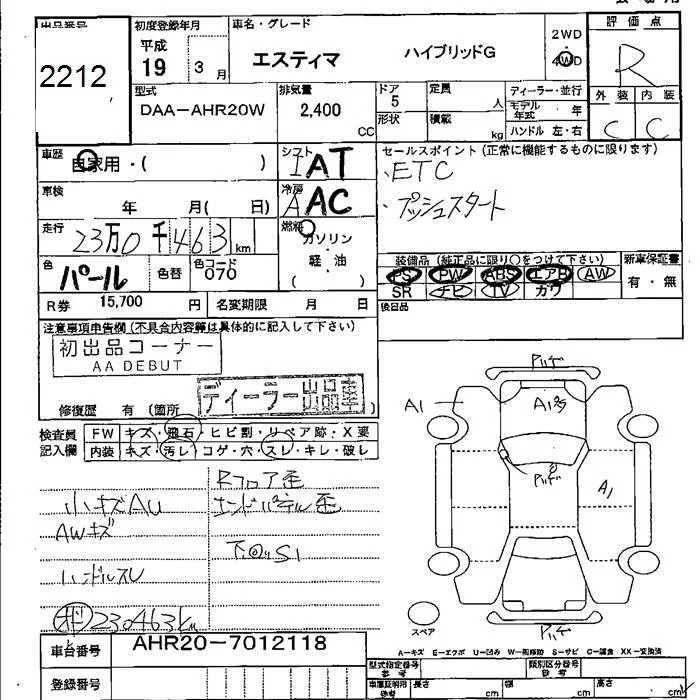 出品番号
2212
初度登録年月
平成
19 3 月
車名・グレード
エスティマ ハイブリッドG
2WD
4WD
評価点
R
外装 内装
C C
型式
DAA-AHR20W
排気量
2,400
CC
ドア
5
形状
定員
人
積載
kg
ディーラー・並行
モデル年式 年
ハンドル 左・右
車歴
自家用・( )
シフト
IAT
セールスポイント(正常に機能するものに限ります)
・ETC
・プッシュスタート
車検
年 月( 日)
冷房
A AC
走行
23万0千463 km
燃料
ガソリン
軽・油
( )
色
パール
色替
色コード
070
装備品(純正品に限り○をつけて下さい)
PS PW ABS エアB AW
SR ナビ TV カワ
新車保証書
有・無
R券 15,700 円
名変期限 月 日
後日品
注意事項申告欄(不具合内容等は具体的に記入して下さい)
初出品コーナー
AA DEBUT
ディーラー出品車
修復歴 有(箇所 )
検査員
記入欄
FW キズ・飛石・ヒビ割・リペア跡・X要
内装 キズ・汚レ・コゲ・穴・スレ・キレ・破レ
Rフロア歪
小キズAU エンドパネル歪
AWキズ
下回りS1
ハンドルスレ
230463km
A1
A1
スペア
A-キズ E-エクボ U-凹み W-補修跡 S-サビ C-腐食 XX-交換済
車台番号 AHR20-7012118
登録番号
型式指定番号
参考
類別区分番号
参考
車庫証明用
参考
長さ cm 幅 cm 高さ cm